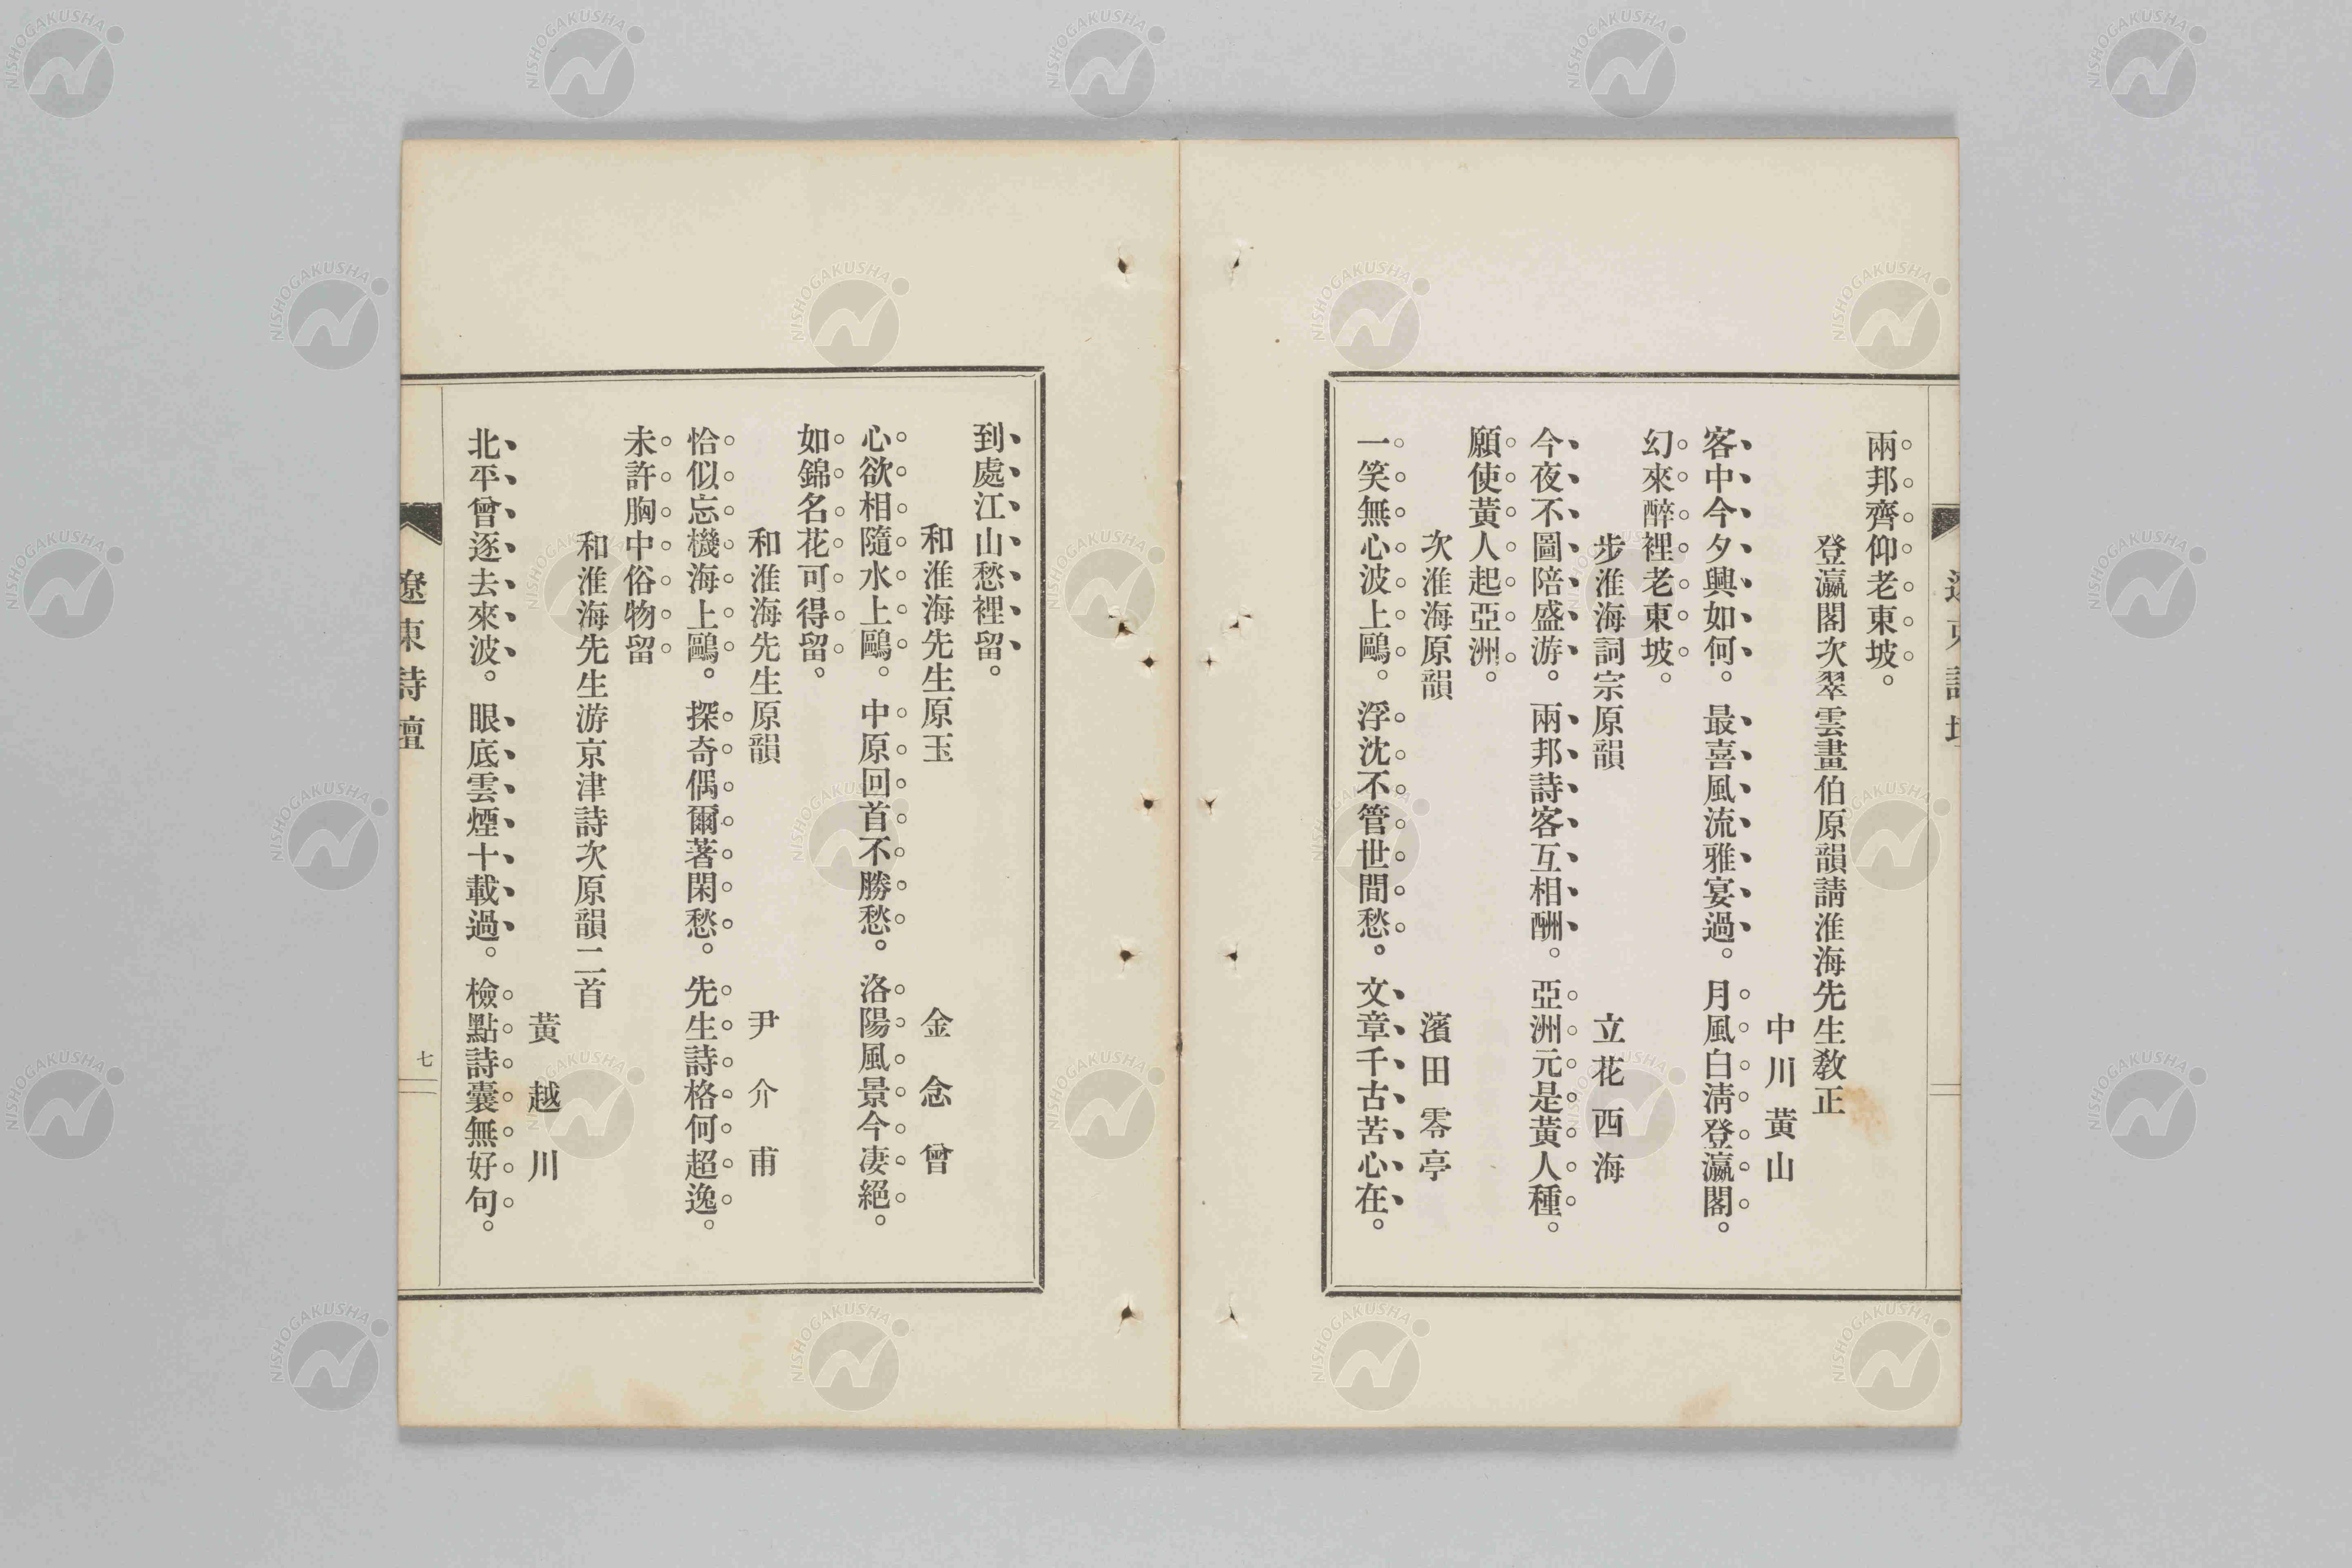 兩邦齊仰老東坡。
登瀛閣次翠雲畫伯原韻請淮海先生敎正
中川黃山
客中今夕興如何。最喜風流雅宴過。月風白淸登瀛閣。
幻來醉裡老東坡。
步淮海詞宗原韻
立花西海
今夜不圖陪盛游。兩邦詩客互相酬。亞洲元是黃人種。
願使黃人起亞洲。
次淮海原韻
濱田零亭
一笑無心波上鷗。浮沈不管世間愁。文章千古苦心在。
到處江山愁裡留。
和淮海先生原玉
金念曾
心欲相隨水上鷗。中原回首不勝愁。洛陽風景今凄絕。
如錦名花可得留。
和淮海先生原韻
尹介甫
恰似忘機海上鷗。探奇偶爾著閑愁。先生詩格何超逸。
未許胸中俗物留
和淮海先生游京津詩次原韻二首
黃越川
北平曾逐去來波。眼底雲煙十載過。檢點詩囊無好句。
遼東詩壇
七
NISHOGAKUSHA